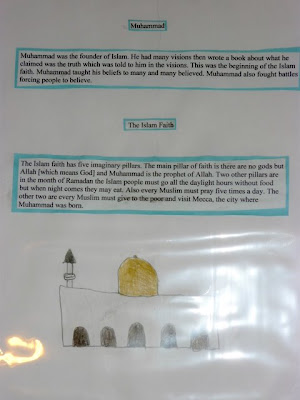 Muhammad
Muhammad was the founder of Islam. He had many visions then wrote a book about what he
claimed was the truth which was told to him in the visions. This was the beginning of the Islam
faith. Muhammad taught his beliefs to many and many believed. Muhammad also fought battles
forcing people to believe.
The Islam Faith
The Islam faith has five imaginary pillars. The main pillar of faith is there are no gods but
Allah [which means God] and Muhammad is the prophet of Allah. Two other pillars are
in the month of Ramadan the Islam people must go all the daylight hours without food
but when night comes they may eat. Also every Muslim must pray five times a day. The
other two are every Muslim must give to the poor and visit Mecca, the city where
Muhammad was born.